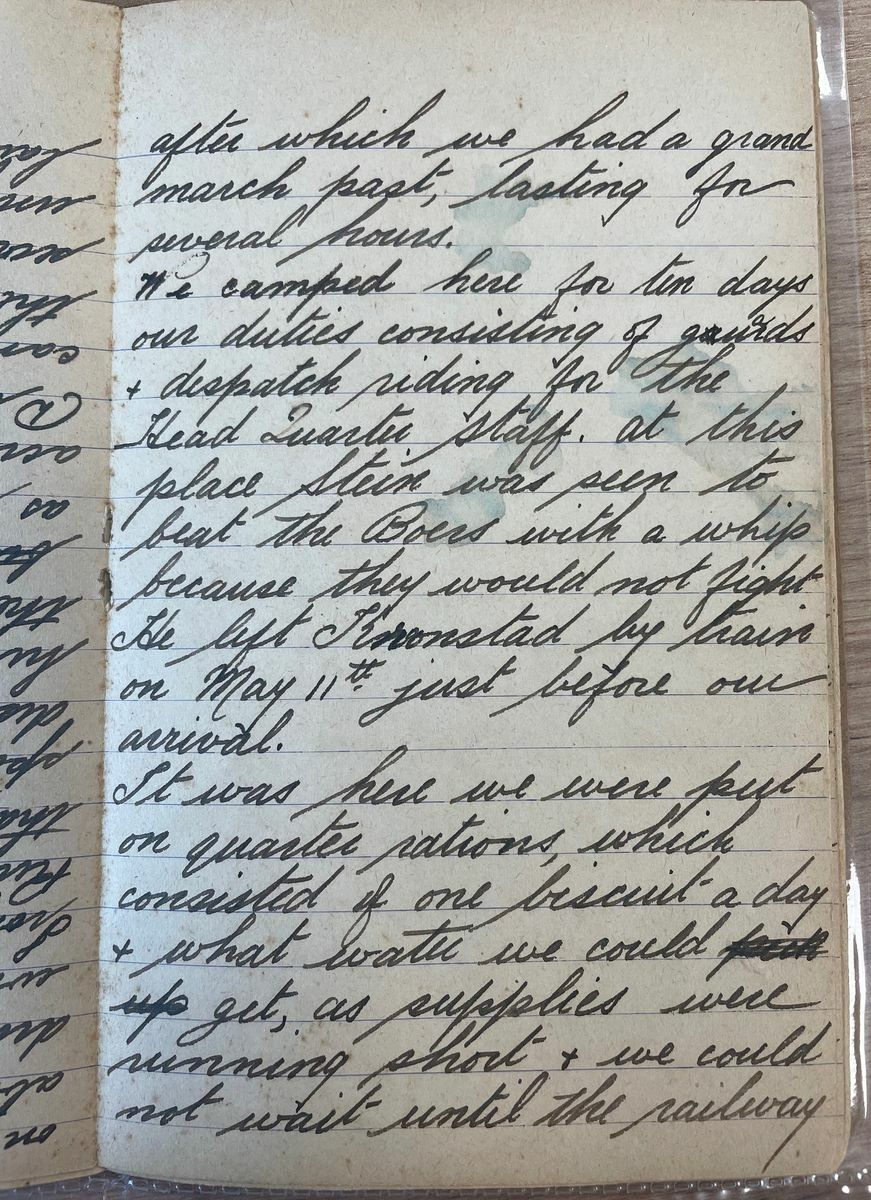 after which we had a grand
march past, lasting for
several hours.
We camped here for ten days
our duties consisting of gaurds
+ despatch riding for the
Head Quarter Staff. at this
place Stein was seen to
beat the Boers with a whip
because they would not fight
He left Kronstad by train
on May 11th just before our
arrival.
It was here we were put
on quarter rations, which
consisted of one biscuit a day
+ what water we could pick
up get, as supplies were
running short + we could
not wait until the railway